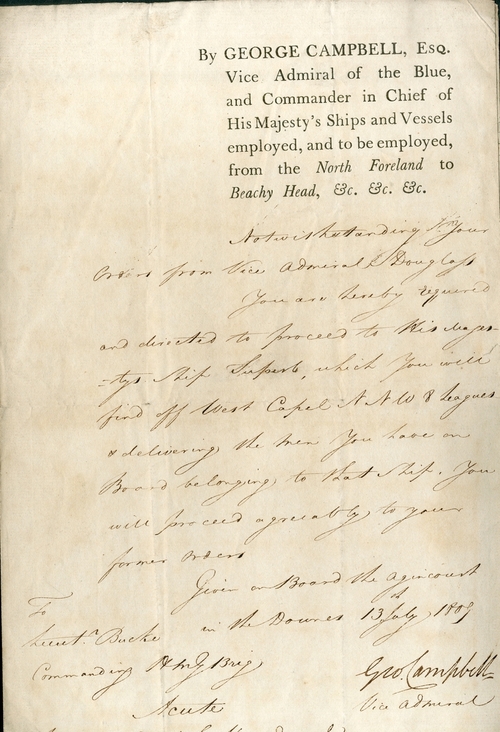 By GEORGE CAMPBELL, Esq.
Vice Admiral of the Blue,
and Commander in Chief of
His Majesty's Ships and Vessels
employed, and to be employed,
from the North Foreland to
Beachy Head, &c. &c. &c.
Notwithstanding your
orders from Vice Admiral Douglass
You are hereby required
and directed to proceed to His Majes-
-tys Ship Superb, which You will
find off West Capel N N W 8 leagues
& delivering the men You have on
Board belonging to that Ship. You
will proceed agreeably to your
former orders
Given on Board the Agincourt
in the Downes 13th July 1809
To
Lieut.
Commanding H My Brig
Acute
Geo. Campbell
Vice Admiral